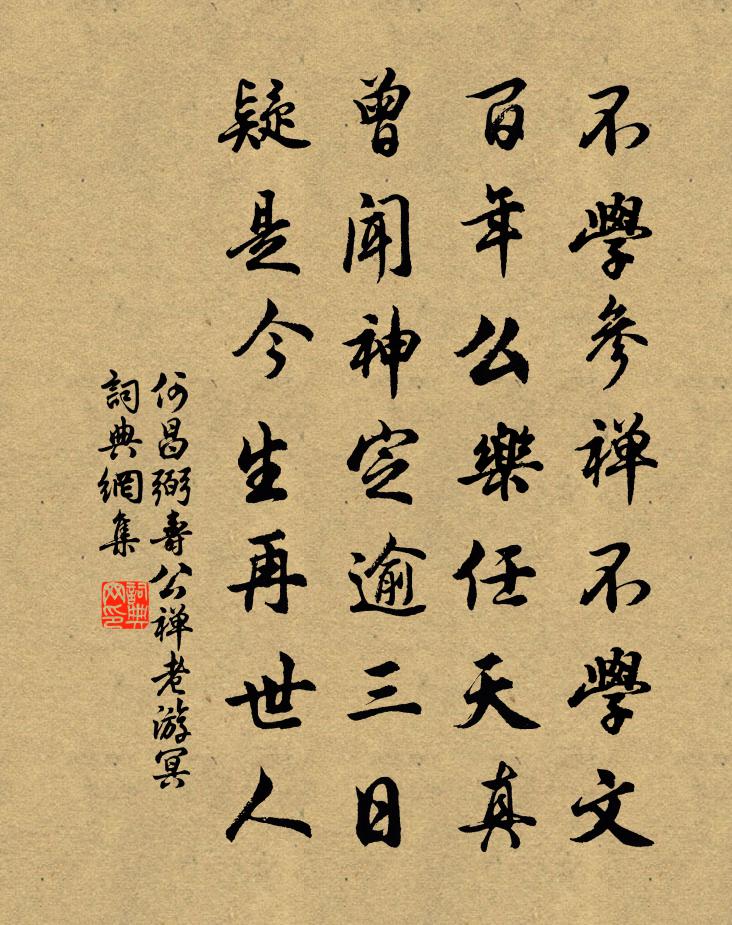 不學參禅不學文
百年么樂任天真
曾闻神定逾三日
疑是今生再世人
何昌弼壽公禅老游冥
詞典網集
詞典网印